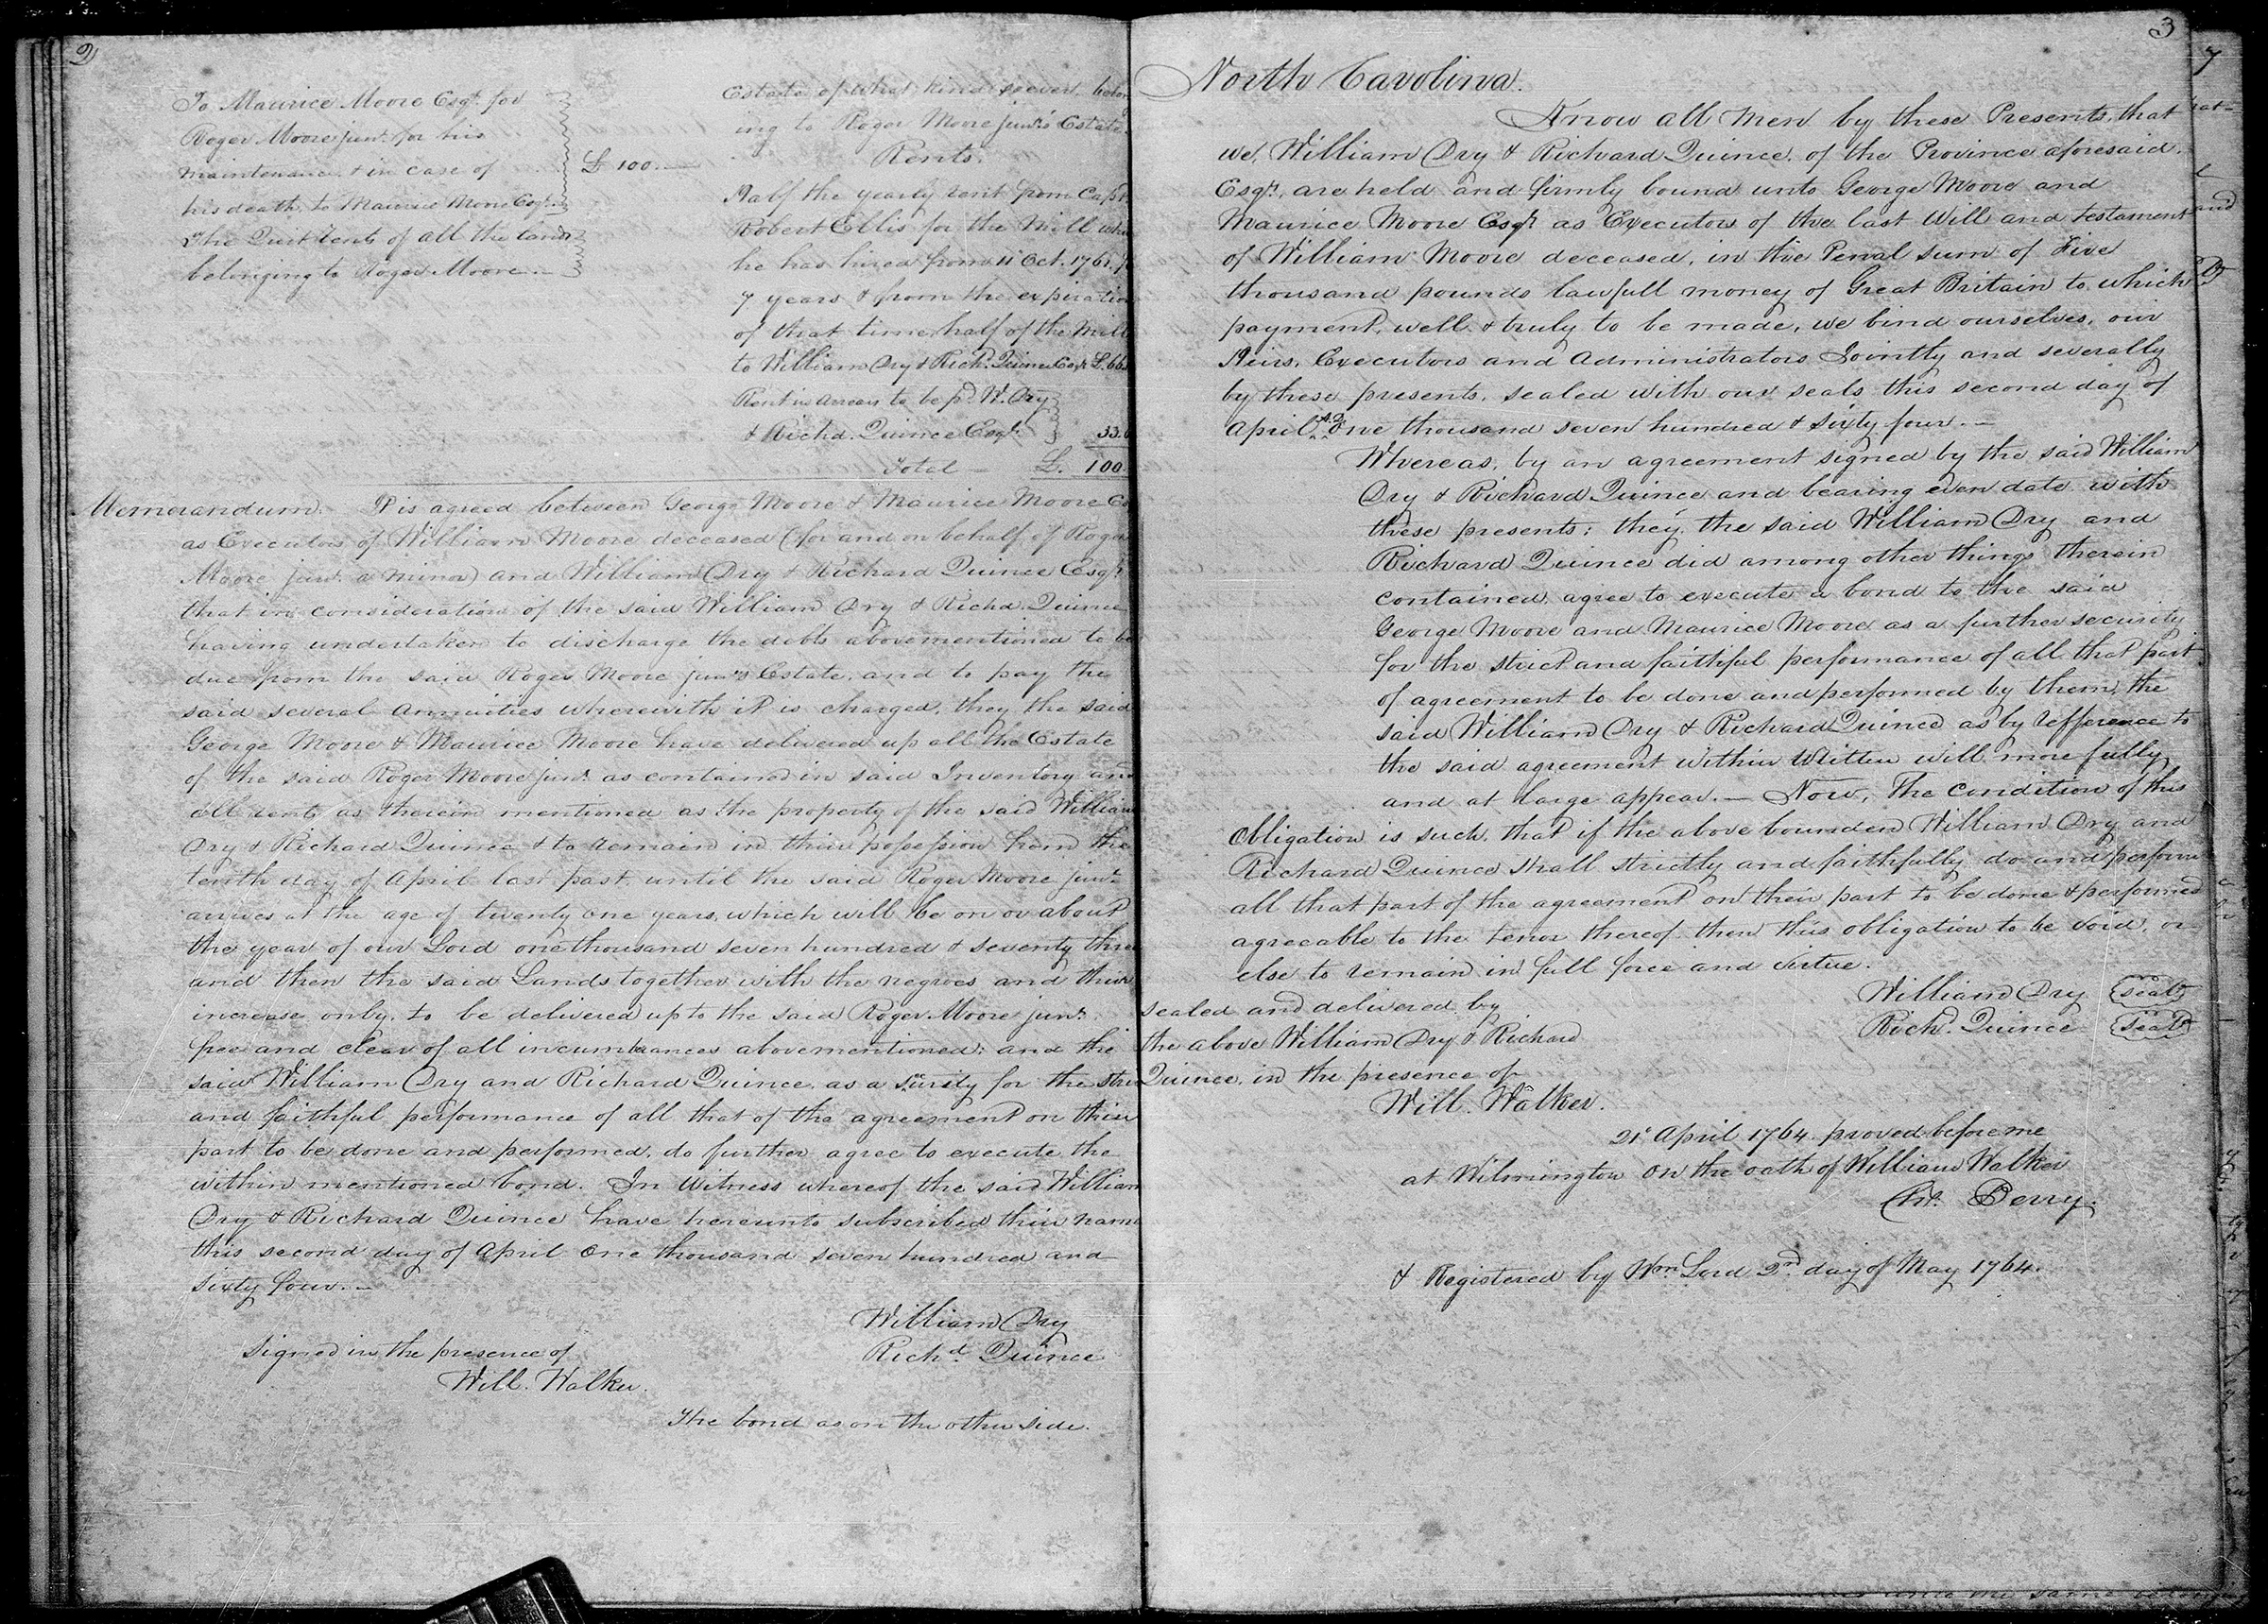 2
To Maurice Moore Esqr. for
Roger Moore junr. for his
maintenance & in case of
his death to Maurice Moore Esqr.
£ 100. —
The Quit rents of all the lands
belonging to Roger Moore. —
Estate of what kind soever belon
ing to Roger Moore junr's Estate
Rents.
Half the yearly rent from Capt.
Robert Ellis for the Mill
he has hired from 11 Oct. 1761.
7 years & from the expiration
of that time half of the Mill
to William Dry & Rich. Quince Esqr £. 66
Rent in arrears to be pd. W. Dry
& Richd. Quince Esqr.
33.
Total — £. 100
Memorandum. It is agreed between George Moore & Maurice Moore
as Executors of William Moore deceased (for and on behalf of Roger
Moore junr. a minor) and William Dry & Richard Quince Esqrs
that in consideration of the said William Dry & Richd. Quince
having undertaken to discharge the debts abovementioned to be
due from the said Roger Moore junrs Estate, and to pay the
said several annuities wherewith it is charged, they the said
George Moore & Maurice Moore have delivered up all the Estate
of the said Roger Moore junr. as contained in said Inventory and
all rents as therein mentioned as the property of the said William
Dry & Richard Quince & to remain in their possession from the
tenth day of April last past, until the said Roger Moore junr.
arrives at the age of twenty one years, which will be on or about
the year of our Lord one thousand seven hundred & seventy three
and then the said Lands together with the negroes and their
increase only, to be delivered up to the said Roger Moore junr.
free and clear of all incumbrances abovementioned: and the
said William Dry and Richard Quince, as a surity for the
and faithful performance of all that of the agreement on their
part to be done and performed, do further agree to execute the
within mentioned bond. In Witness whereof the said William
Dry & Richard Quince have hereunto subscribed their name
this second day of April One thousand seven hundred and
sixty four. —
William Dry
Richd. Quince
Signed in the presence of
Will. Walker.
The bond as on the other side.
3
North Carolina.
Know all Men by these Presents, that
we, William Dry & Richard Quince, of the Province aforesaid.
Esqrs. are held and firmly bound unto George Moore and
Maurice Moore Esqrs as Executors of the last Will and testament
of William Moore deceased, in the Penal sum of Five
thousand pounds lawfull money of Great Britain to which
payment, well & truly to be made, we bind ourselves, our
Heirs, Executors and Administrators Jointly and severally
by these presents, sealed with our seals this second day of
April A.D. One thousand seven hundred & sixty four. —
Whereas, by an agreement signed by the said William
Dry & Richard Quince and bearing even date with
these presents; they, the said William Dry and
Richard Quince did among other things therein
contained, agree to execute a bond to the said
George Moore and Maurice Moore as a further security
for the strict and faithful performance of all that part
of agreement to be done and performed by them, the
said William Dry & Richard Quince as by refference to
the said agreement within written will more fully
and at large appear. — Now, The Condition of this
Obligation is such, that if the above bounden William Dry and
Richard Quince shall strictly and faithfully do and perform
all that part of the agreement on their part to be done & performed
agreeable to the tenor thereof then this obligation to be void, or
else to remain in full force and virtue.
William Dry (seal)
Richd. Quince (seal)
Sealed and delivered by
the above William Dry & Richard
Quince, in the presence of
Will. Walker.
21st April 1764 proved before me
at Wilmington on the oath of William Walker
Cht. Berry.
& Registered by Wm. Lord 2nd. day of May 1764.
7
and